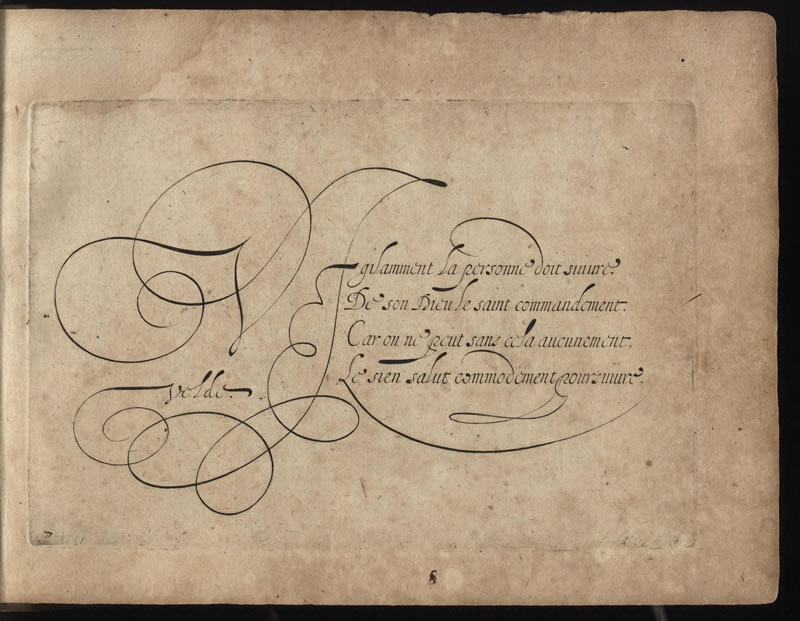 VIgilamment la personne doit suivre.
De son Dieu le saint commandement.
Car on ne peut sans cela aucunement.
Le sien salut commodement poursuivre.
velde.
7
8